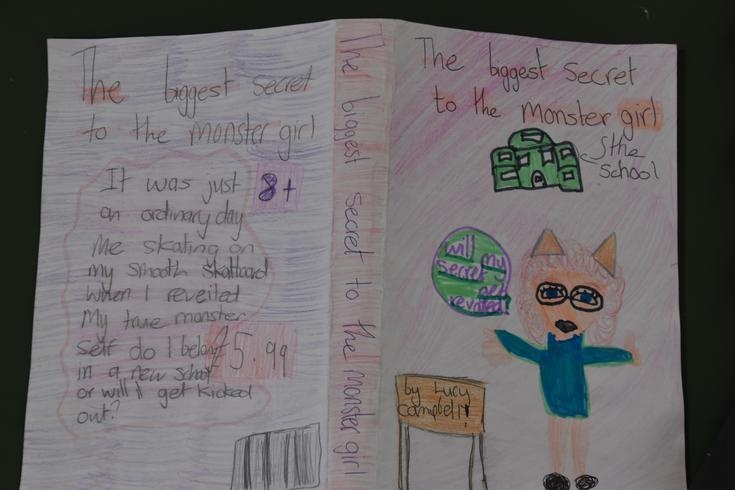 The biggest secret
to the monster girl
It was just
an ordinary day
Me skating on
my smooth skatboard
when I reveiled
My true monster
self do I belong
in a new school
or will I get kicked
out?
8+
£5.99
The biggest secret to the monster girl
The biggest secret
to the monster girl
the
school
will my
secret
get
revealed!
by Lucy
Campbell!